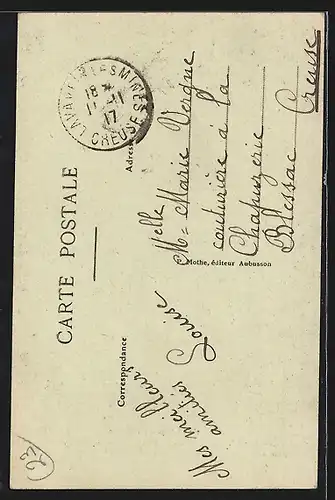 CARTE POSTALE
Correspondance
Mes meilleures
amitiés
Louise
Adresse
LAVAVEIX-LES-MINES
18 *
11-11
17
CREUSE
Melle
Marie Vergne
couturière à la
Chapuzerie
Blessac Creuse
Mothe, éditeur Aubusson
23